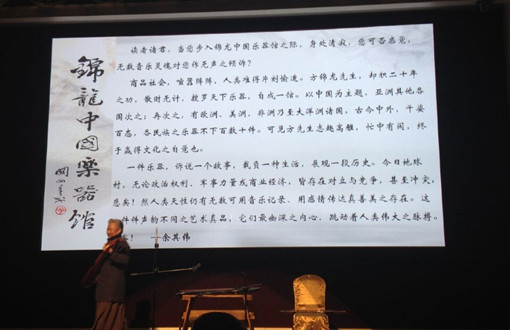 錦龍中國樂器館
读者诸君,当您步入锦龙中国乐器馆之际,身处清寂,您可否感觉,
无数音乐灵魂对您作无声之倾诉?
商品社会,喧嚣阵阵,人类难得片刻愉逸。方锦龙先生,却积二十年
之功,散财无计,搜罗天下乐器,自成一馆。以中国为主题,亚洲其他各
国次之;再次之,有欧洲、美洲、非洲乃至大洋洲诸国,古今中外,千姿
百态,各民族之乐器不下百数十件。可见方先生志趣高雅,忙中有闲,终
于赢得文化之自觉也。
一件乐器,诉说一个故事,载负一种生活,展现一段历史。今日地球
村,无论政治权利、军事力量或商业经济,皆存在对立与竞争,甚至冲突,
恶矣!然人类天性仍有无数可用音乐记录、用感情传达真善美之存在。这
件件声物不同之艺术真品,它们最幽深之内心,跳动着人类伟大之脉搏。
!——余其伟